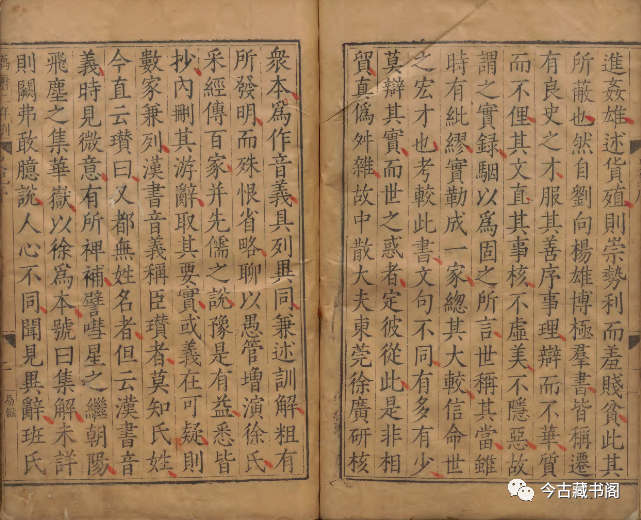 進姦雄述貨殖則崇勢利而羞賤貧此其
所蔽也然自劉向楊雄博極羣書皆稱遷
有良史之才服其善序事理辯而不華質
而不俚其文直其事核不虛美不隱惡故
謂之實録駰以爲固之所言世稱其當雖
時有紕繆實勒成一家總其大較信命世
之宏才也考較此書文句不同有多有少
莫辯其實而世之惑者定彼從此是非相
貿真僞舛雜故中散大夫東莞徐廣研核
衆本爲作音義具列異同兼述訓解粗有
所發明而殊恨省略聊以愚管增演徐氏
采經傳百家并先儒之説豫是有益悉皆
抄内刪其游辭取其要實或義在可疑則
數家兼列漢書音義稱臣瓚者莫知氏姓
今直云瓚曰又都無姓名者但云漢書音
義時見微意有所裨補譬嘒星之繼朝陽
飛塵之集華嶽以徐爲本號曰集解未詳
則闕弗敢臆說人心不同聞見異辭班氏
今古藏书阁